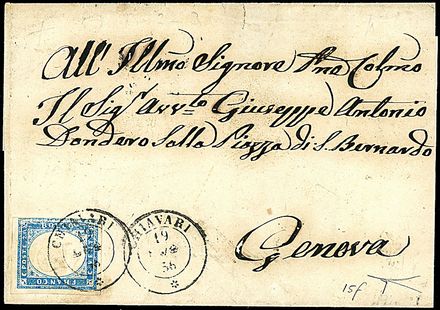 All' Illmo Signore Pna Colmo
Il Sigr Avvto Giuseppe Antonio
Dondero Salla Piazza di S. Bernardo
Genova
CHIAVARI
CHIAVARI
19
56
FRANCO
15f